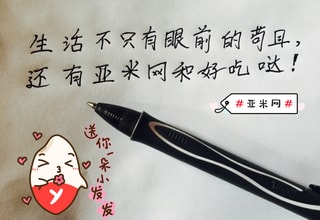 生活不只有眼前的苟且,
还有亚米网和好吃哒!
#亚米网#
送你一朵小发发
y